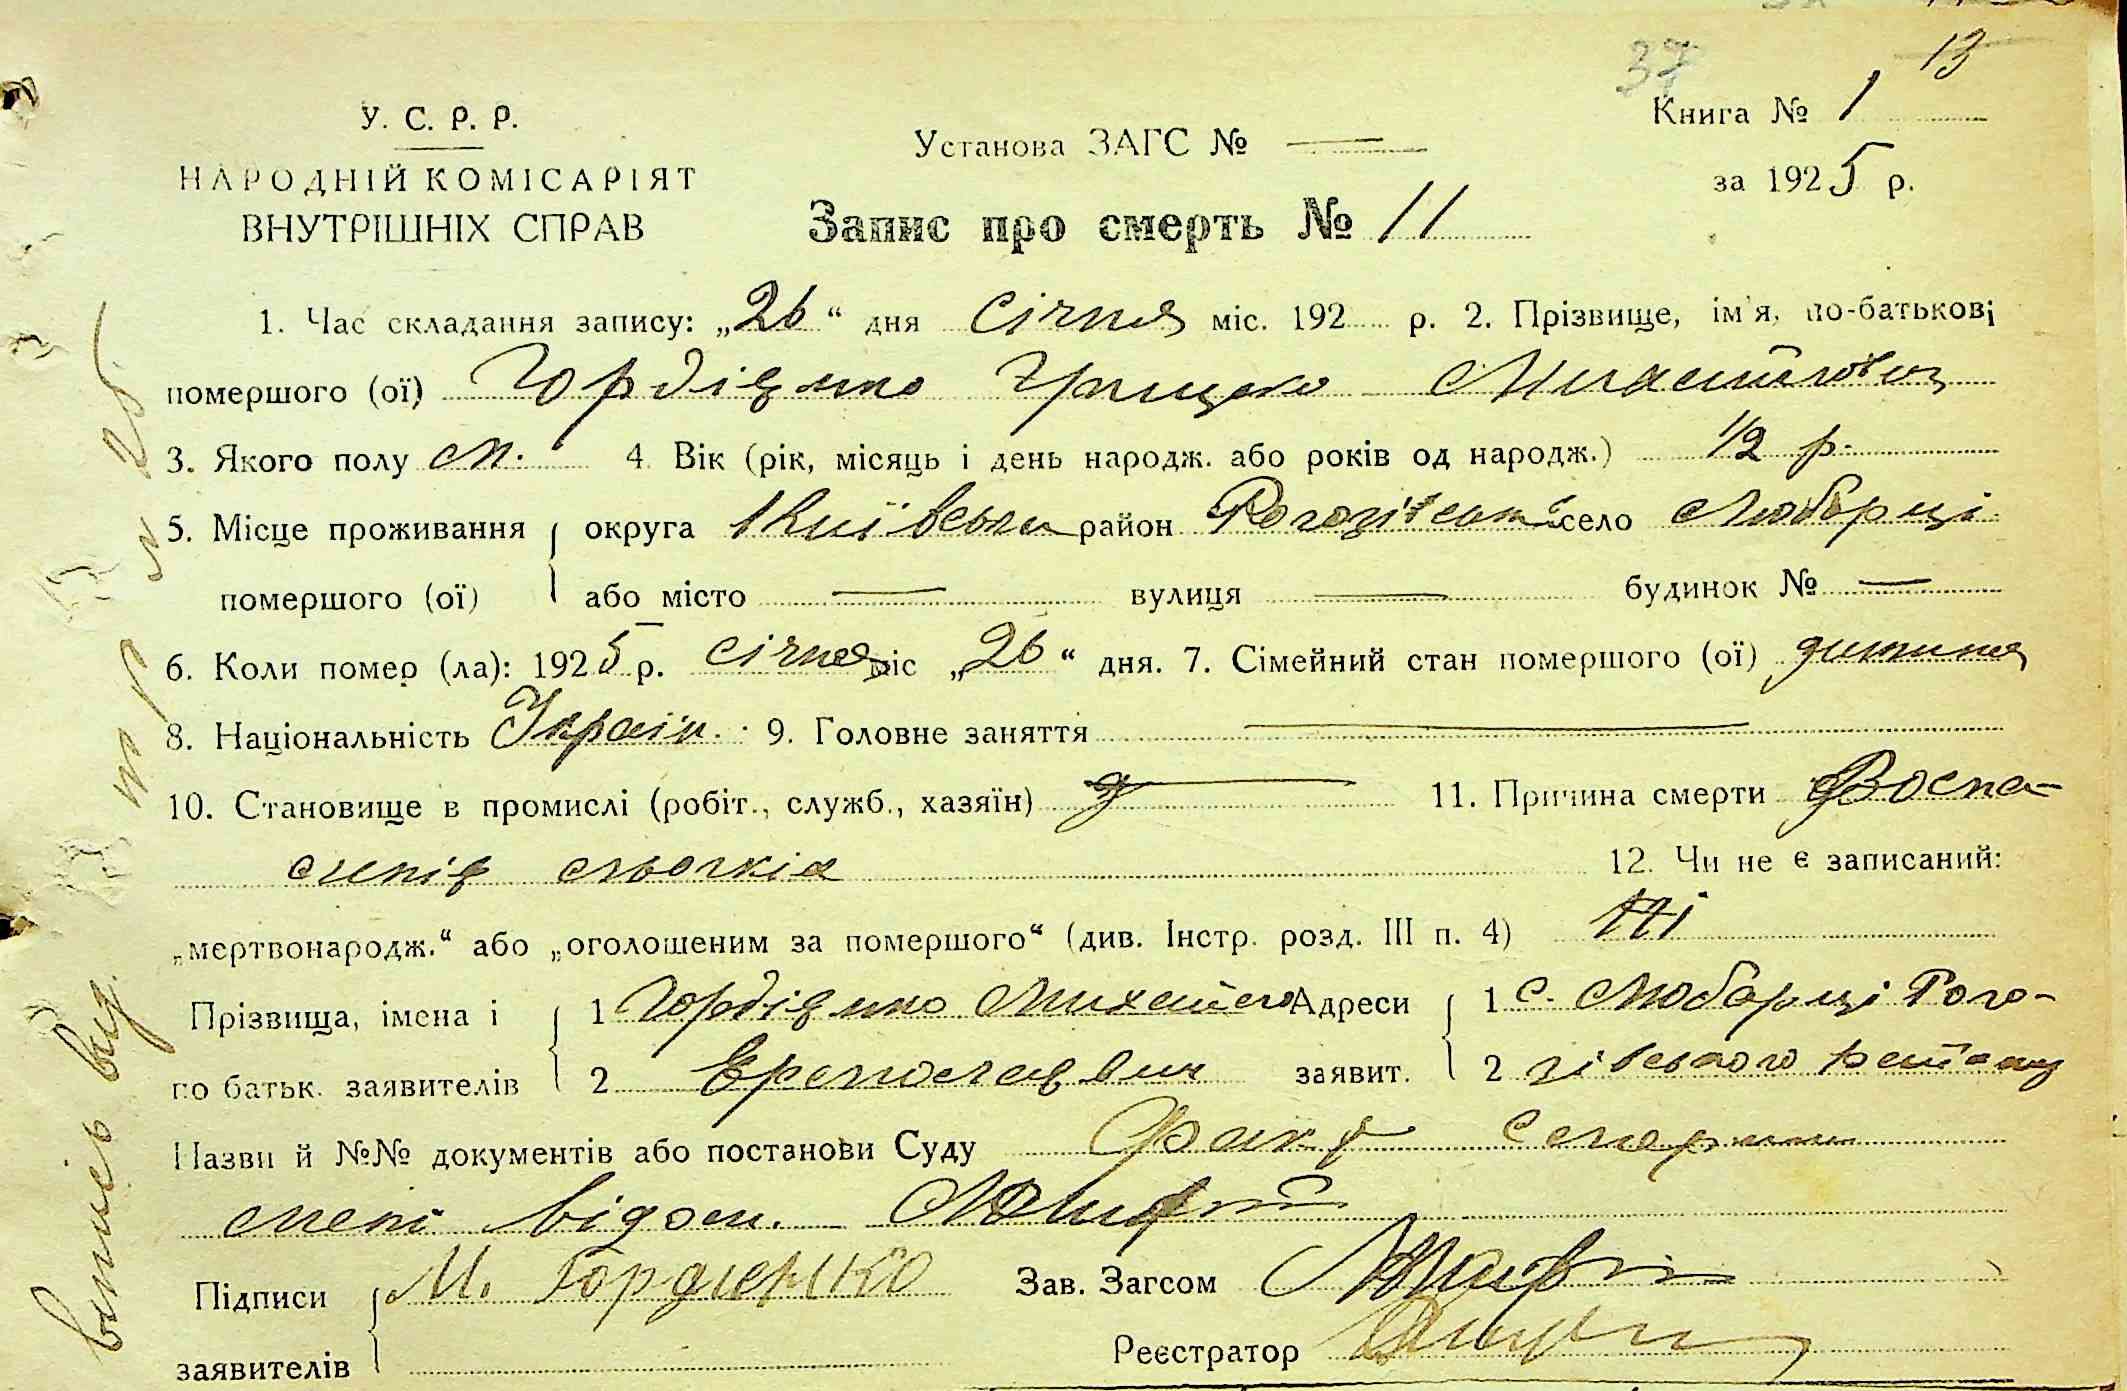 37 13
У. С. Р. Р.
НАРОДНІЙ КОМІСАРІЯТ
ВНУТРІШНІХ СПРАВ
Установа ЗАГС № —
Книга № 1
за 1925 р.
Запис про смерть № 11
1. Час складання запису: „26“ дня Січня міс. 192 р. 2. Прізвище, ім'я, по-батькові
помершого (ої) Гордієнко Грицько
3. Якого полу м. 4. Вік (рік, місяць і день народж. або років од народж.) 1/2 р.
5. Місце проживання помершого (ої) округа Київська район село Любарці
або місто — вулиця — будинок № —
6. Коли помер (ла): 1925 р. Січня міс „26“ дня. 7. Сімейний стан помершого (ої) дитина
8. Національність Україн. 9. Головне заняття —
10. Становище в промислі (робіт., служб., хазяїн) — 11. Причина смерти Воспа-
12. Чи не є записаний:
„мертвонародж.“ або „оголошеним за помершого“ (див. Інстр. розд. III п. 4) Ні
Прізвища, імена і по батьк. заявителів 1 Гордієнко Адреси заявит. 1 с. Любарці Рого-
2 2 зівського району
Назви й №№ документів або постанови Суду Факт смерти
мені відом.
Підписи заявителів М. Гордієнко Зав. Загсом
Реєстратор